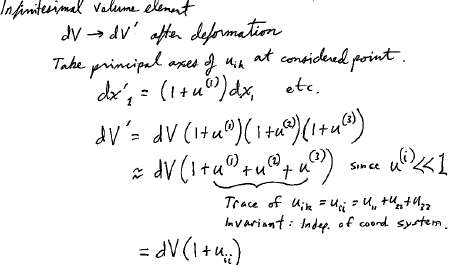 Infinitesimal volume element
dV → dV' after deformation
Take principal axes of u_ik at considered point.
dx'_1 = (1+u^(1))dx_1 etc.
dV' = dV(1+u^(1))(1+u^(2))(1+u^(3))
≈ dV(1+u^(1)+u^(2)+u^(3)) since u^(i)≪1
Trace of u_ik = u_ii = u_11+u_22+u_22
Invariant: Indep. of coord system.
= dV(1+u_ii)